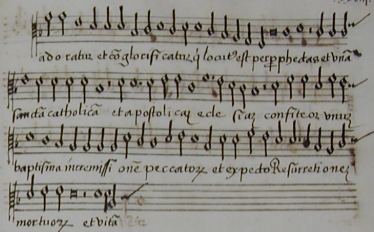 adoratur et cõ glorificatur q̃ locut' est per p̱phetas et unã
sanctã catholicã et apostolicã ecclesiã confiteor unum
baptisma in remissionẽ peccatorꝝ et expecto Resurretionẽ
mortuorꝝ et vitã